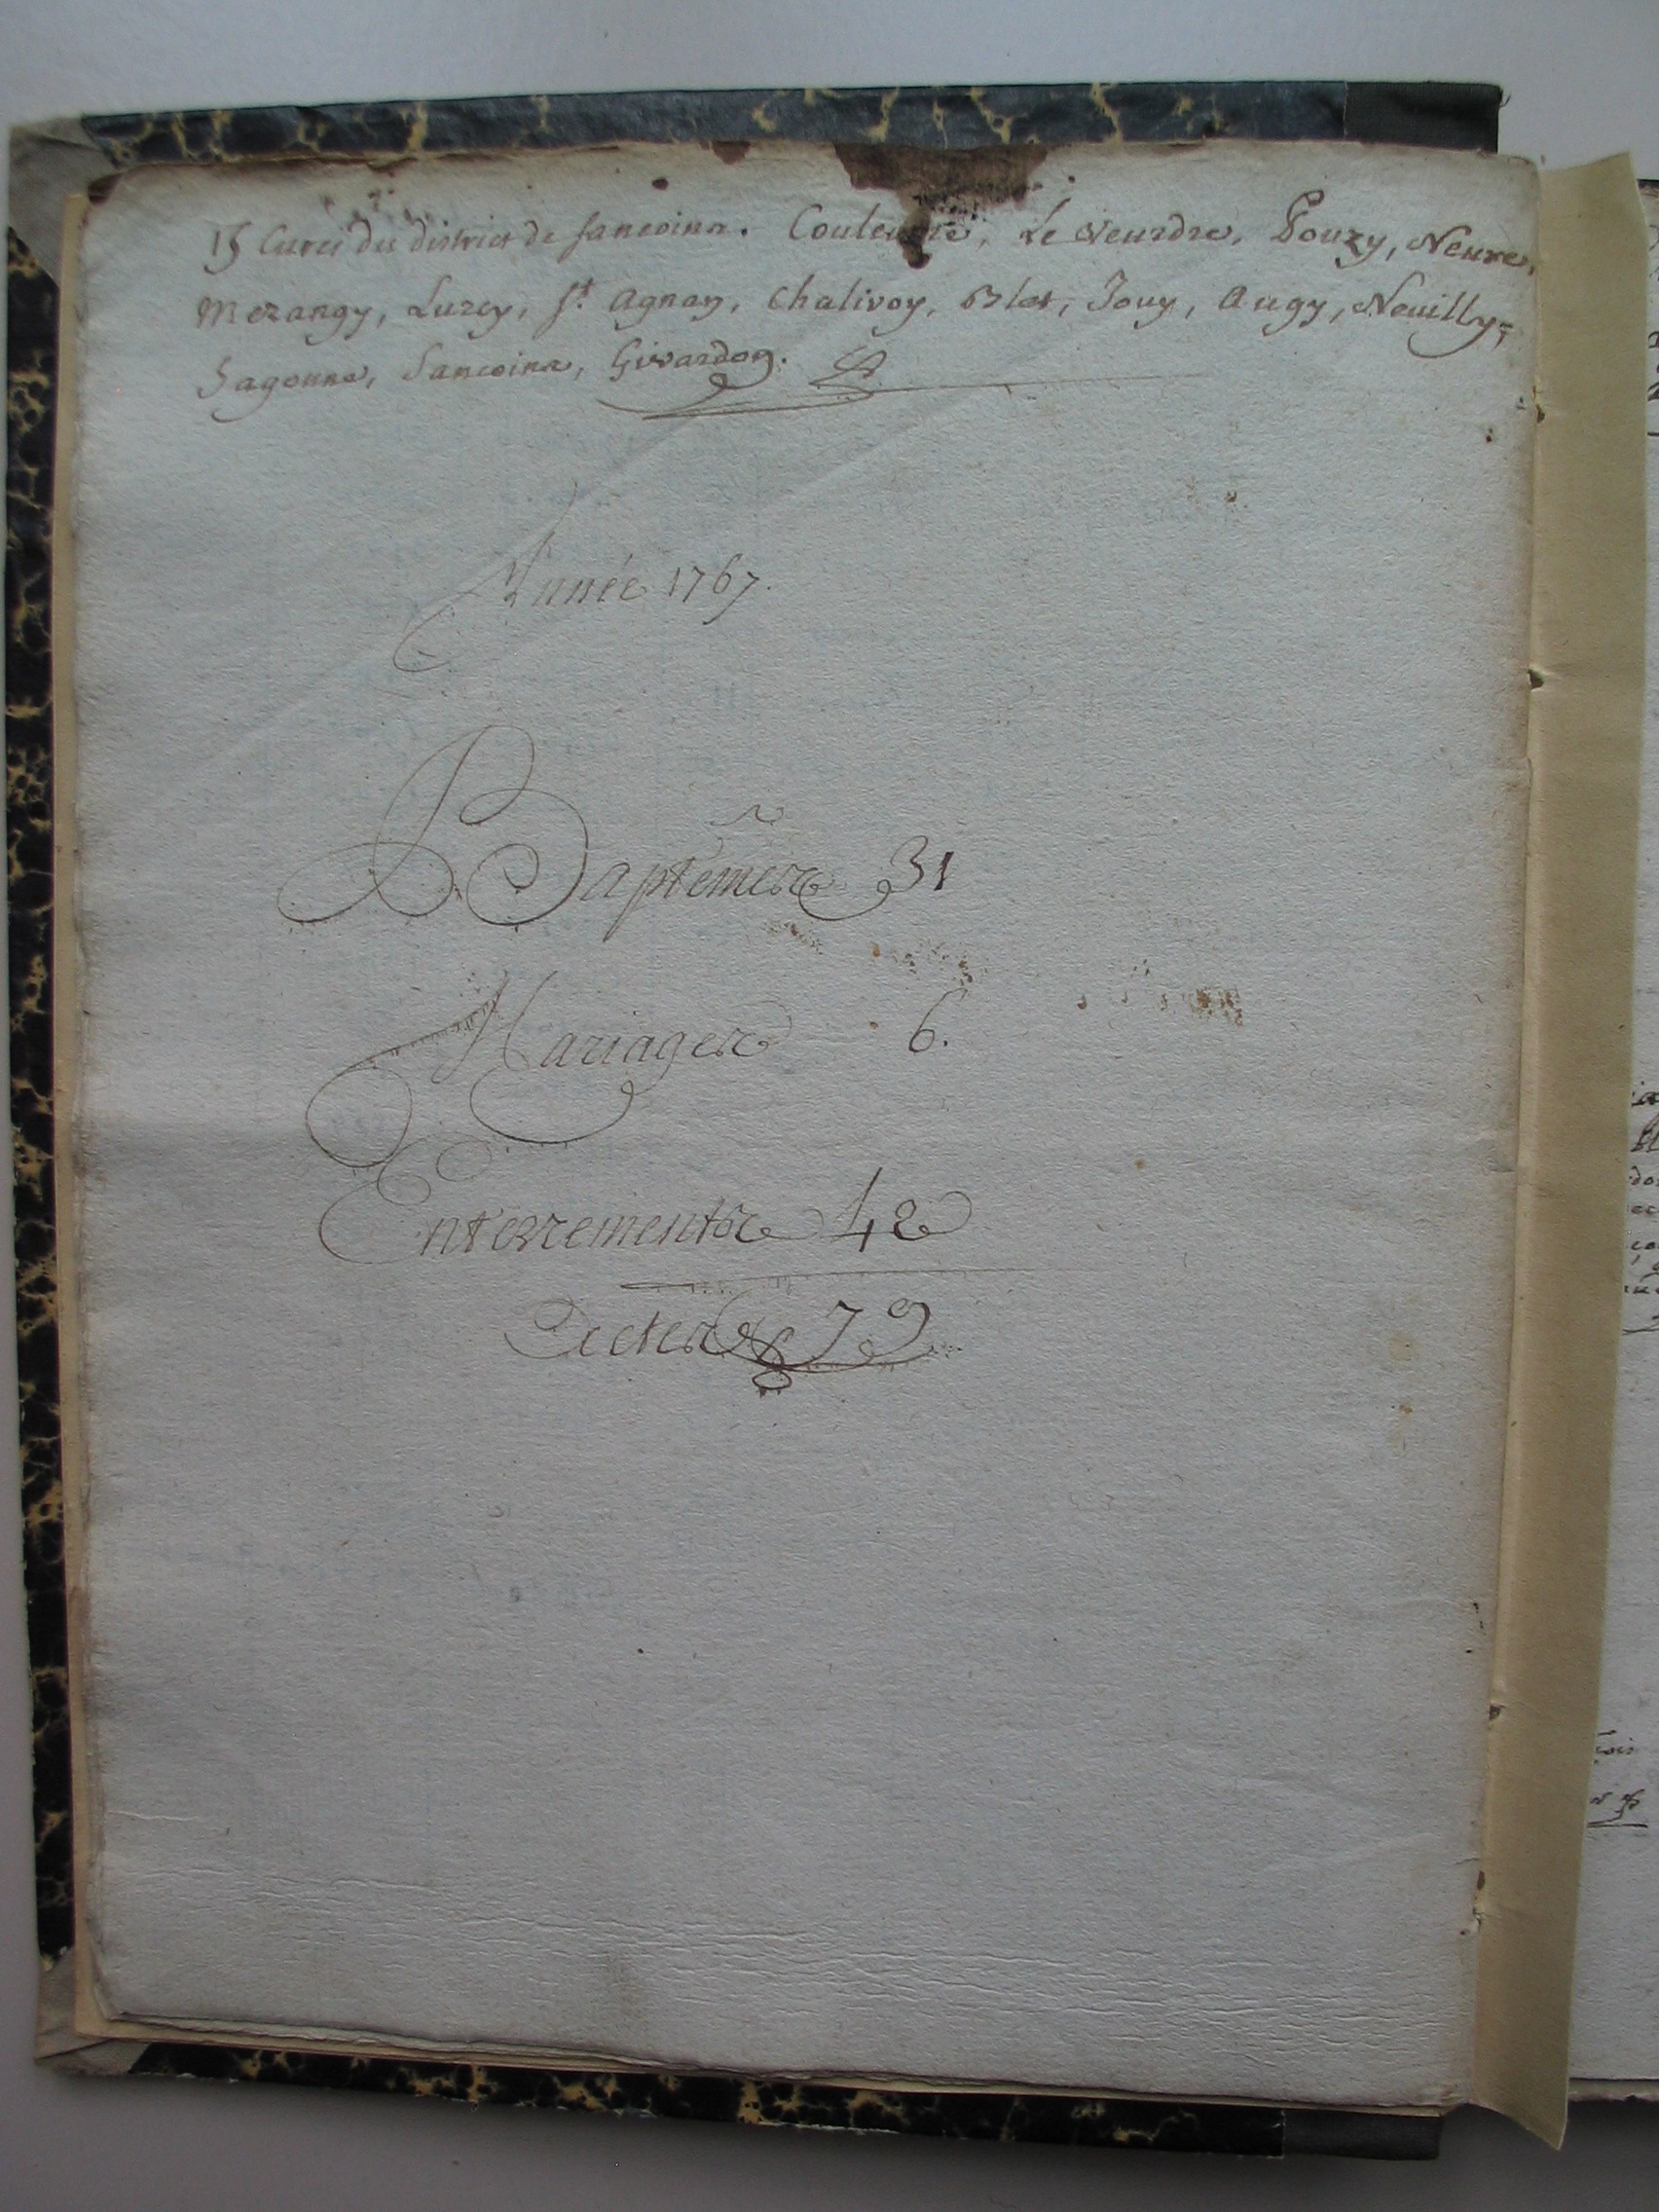 15 Cures du district de Sancoins. Couleuvre, Le Veurdre, Pouzy, Neure,
Mezangy, Lurcy, St. Agnan, Chalivoy, Blet, Jouy, Augy, Neuilly,
Sagonne, Sancoins, Givardon.
Année 1767.
Baptêmes 31
Mariages 6.
Enterrements 42
Actes 79